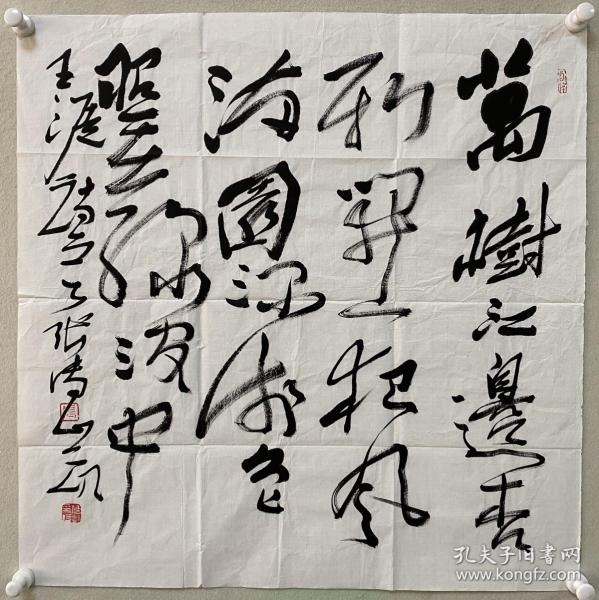 萬樹江邊杏
新開一夜風
滿園深淺色
照在綠波中
王涯詩
孔夫子旧书网
www.kongfz.com